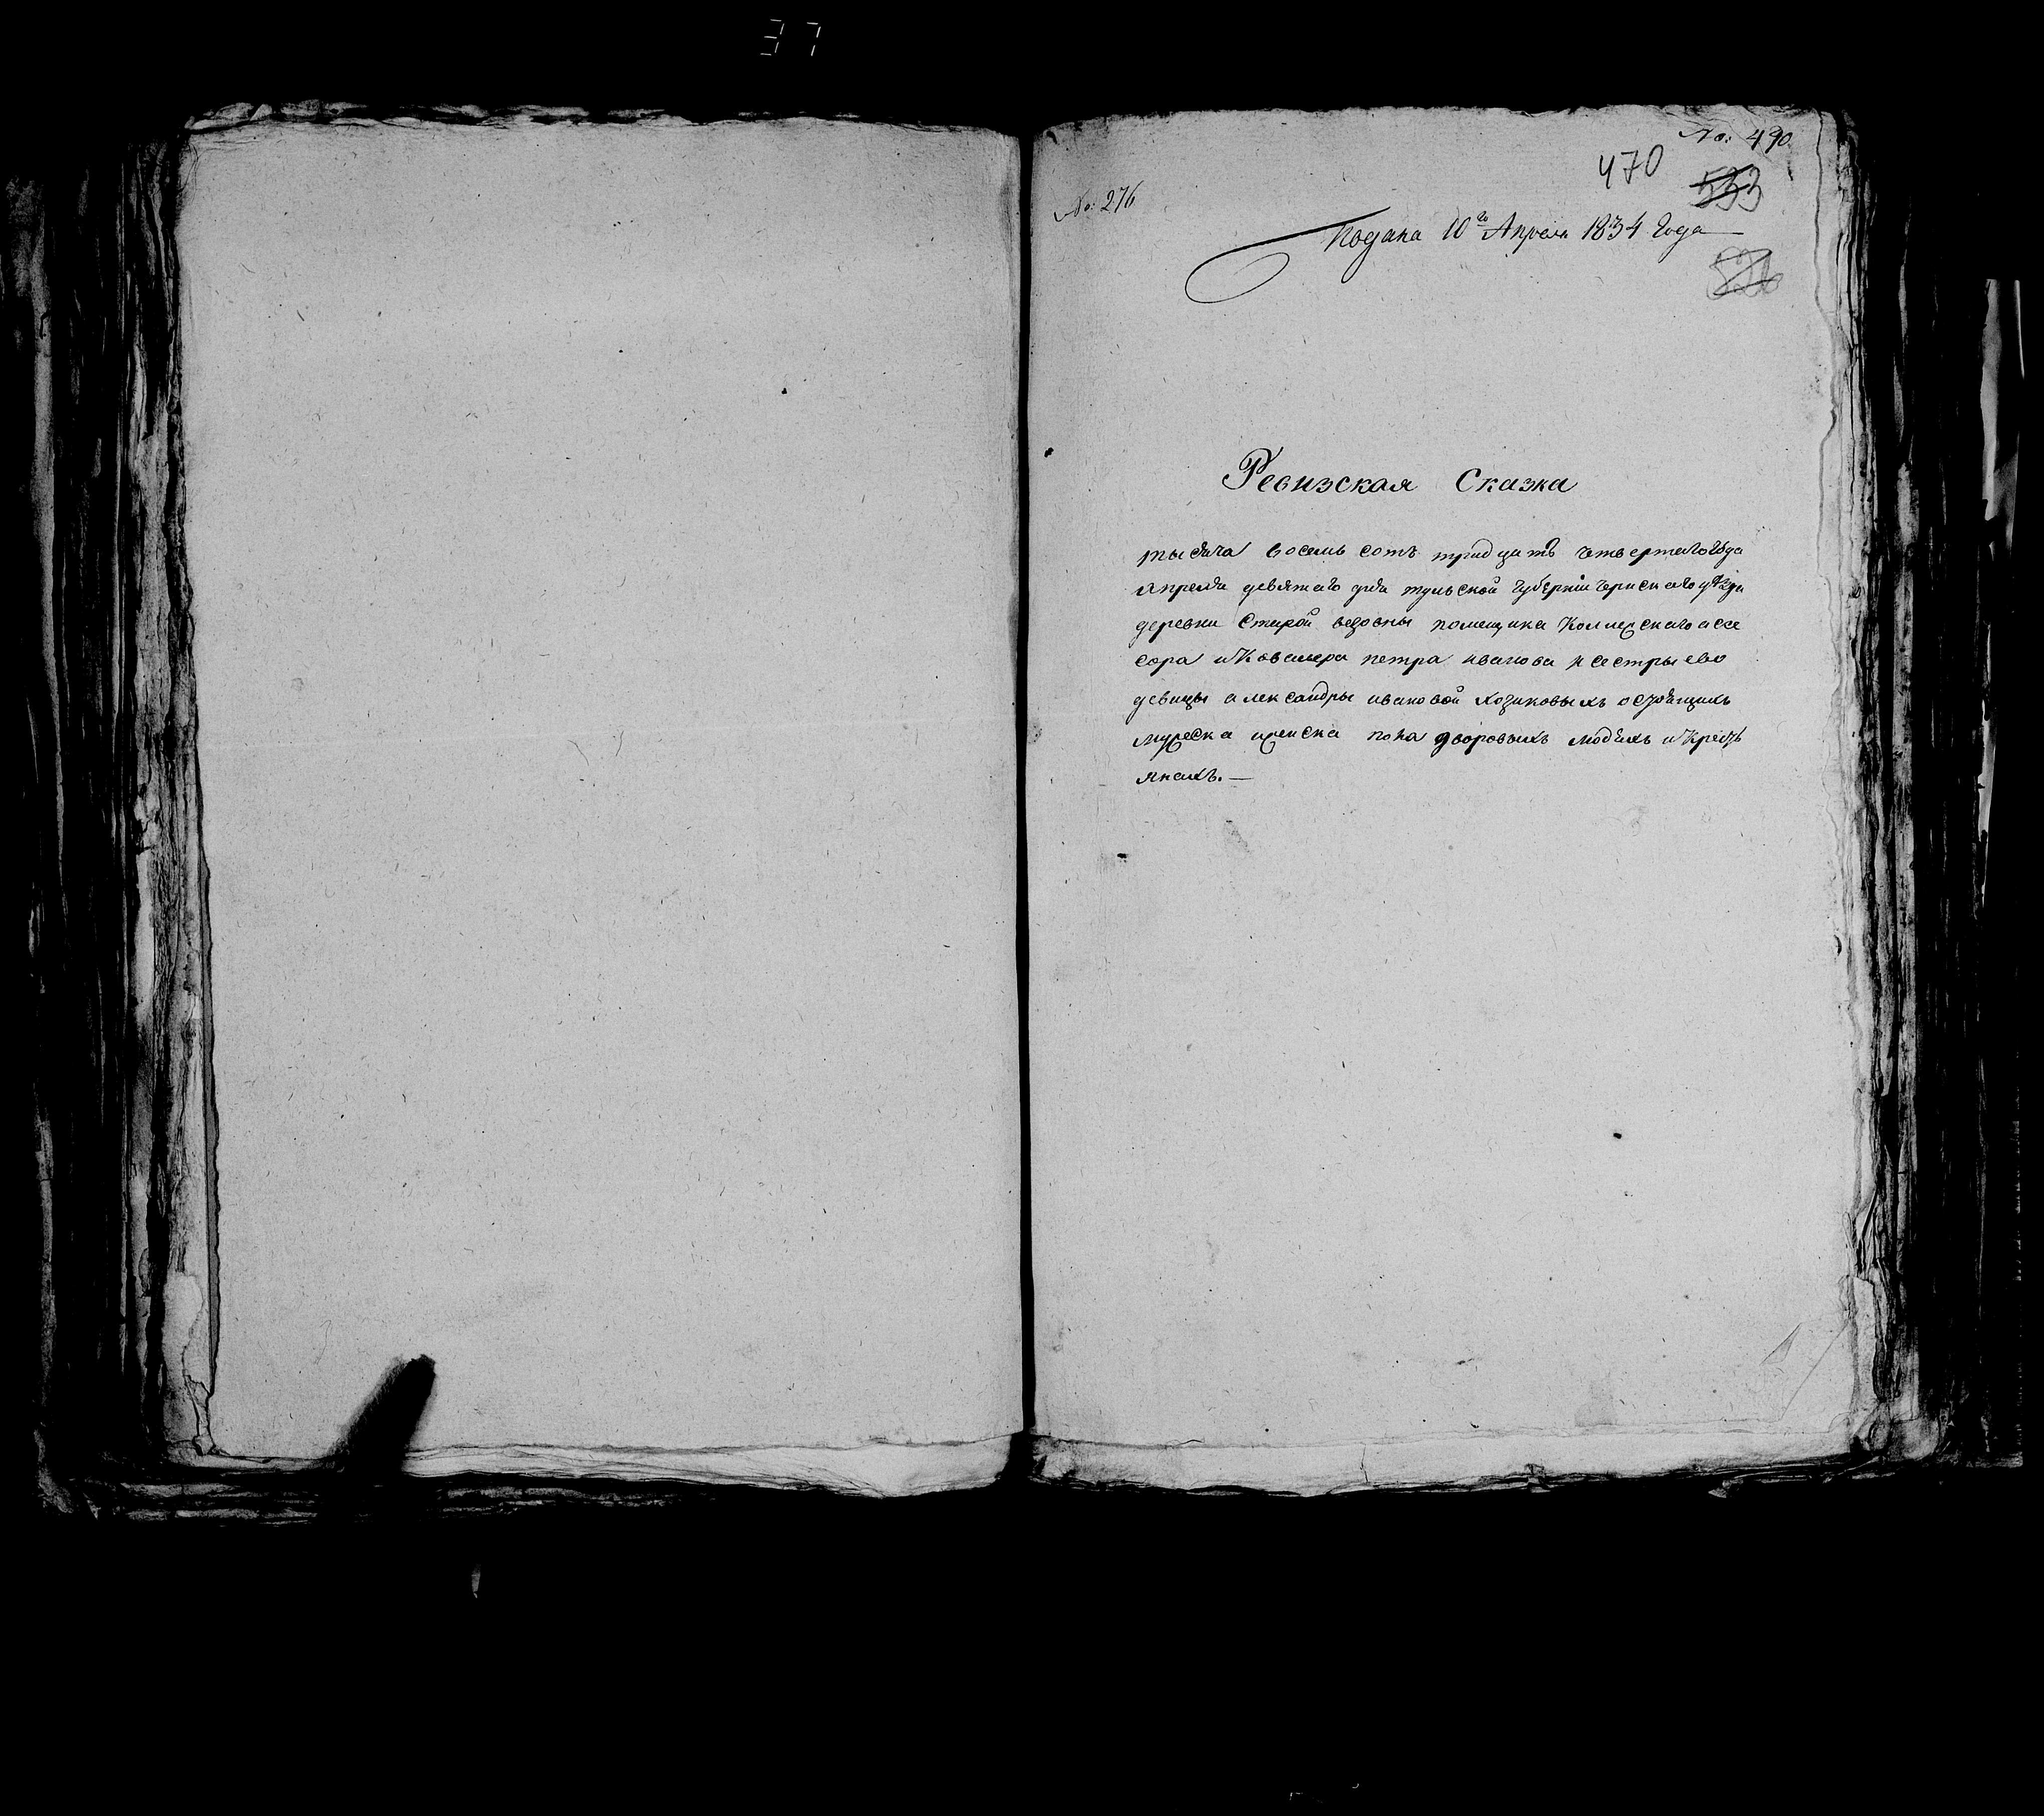 37
No: 490
470
533
No: 276
Подана 10го Апреля 1834 Года
Ревизская Сказка
тысяча восемь сотъ тридцать четвертаго года
апреля девятаго дня тульской губерніи чернскаго уѣзда
деревни Старой помещика Коллежскаго асе
сора и Кавалера петра иванова и сестры ево
девицы александры ивановой хозиковыхъ осостоящихъ
мужеска иженска пола дворовыхъ людѣхъ и Кресть
янахъ.—